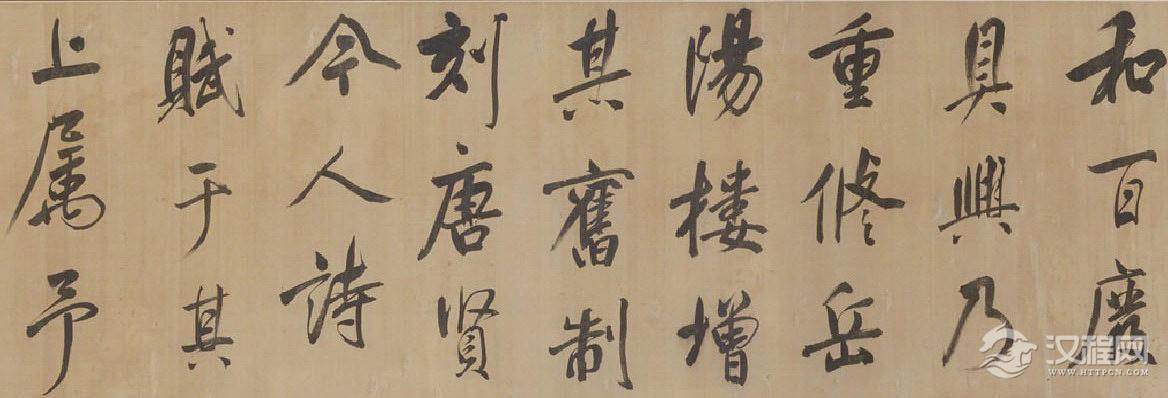 和百废
具興乃
重修岳
陽楼增
其舊制
刻唐賢
今人詩
賦于其
上属予
汉程网
WWW.HTTPCN.COM